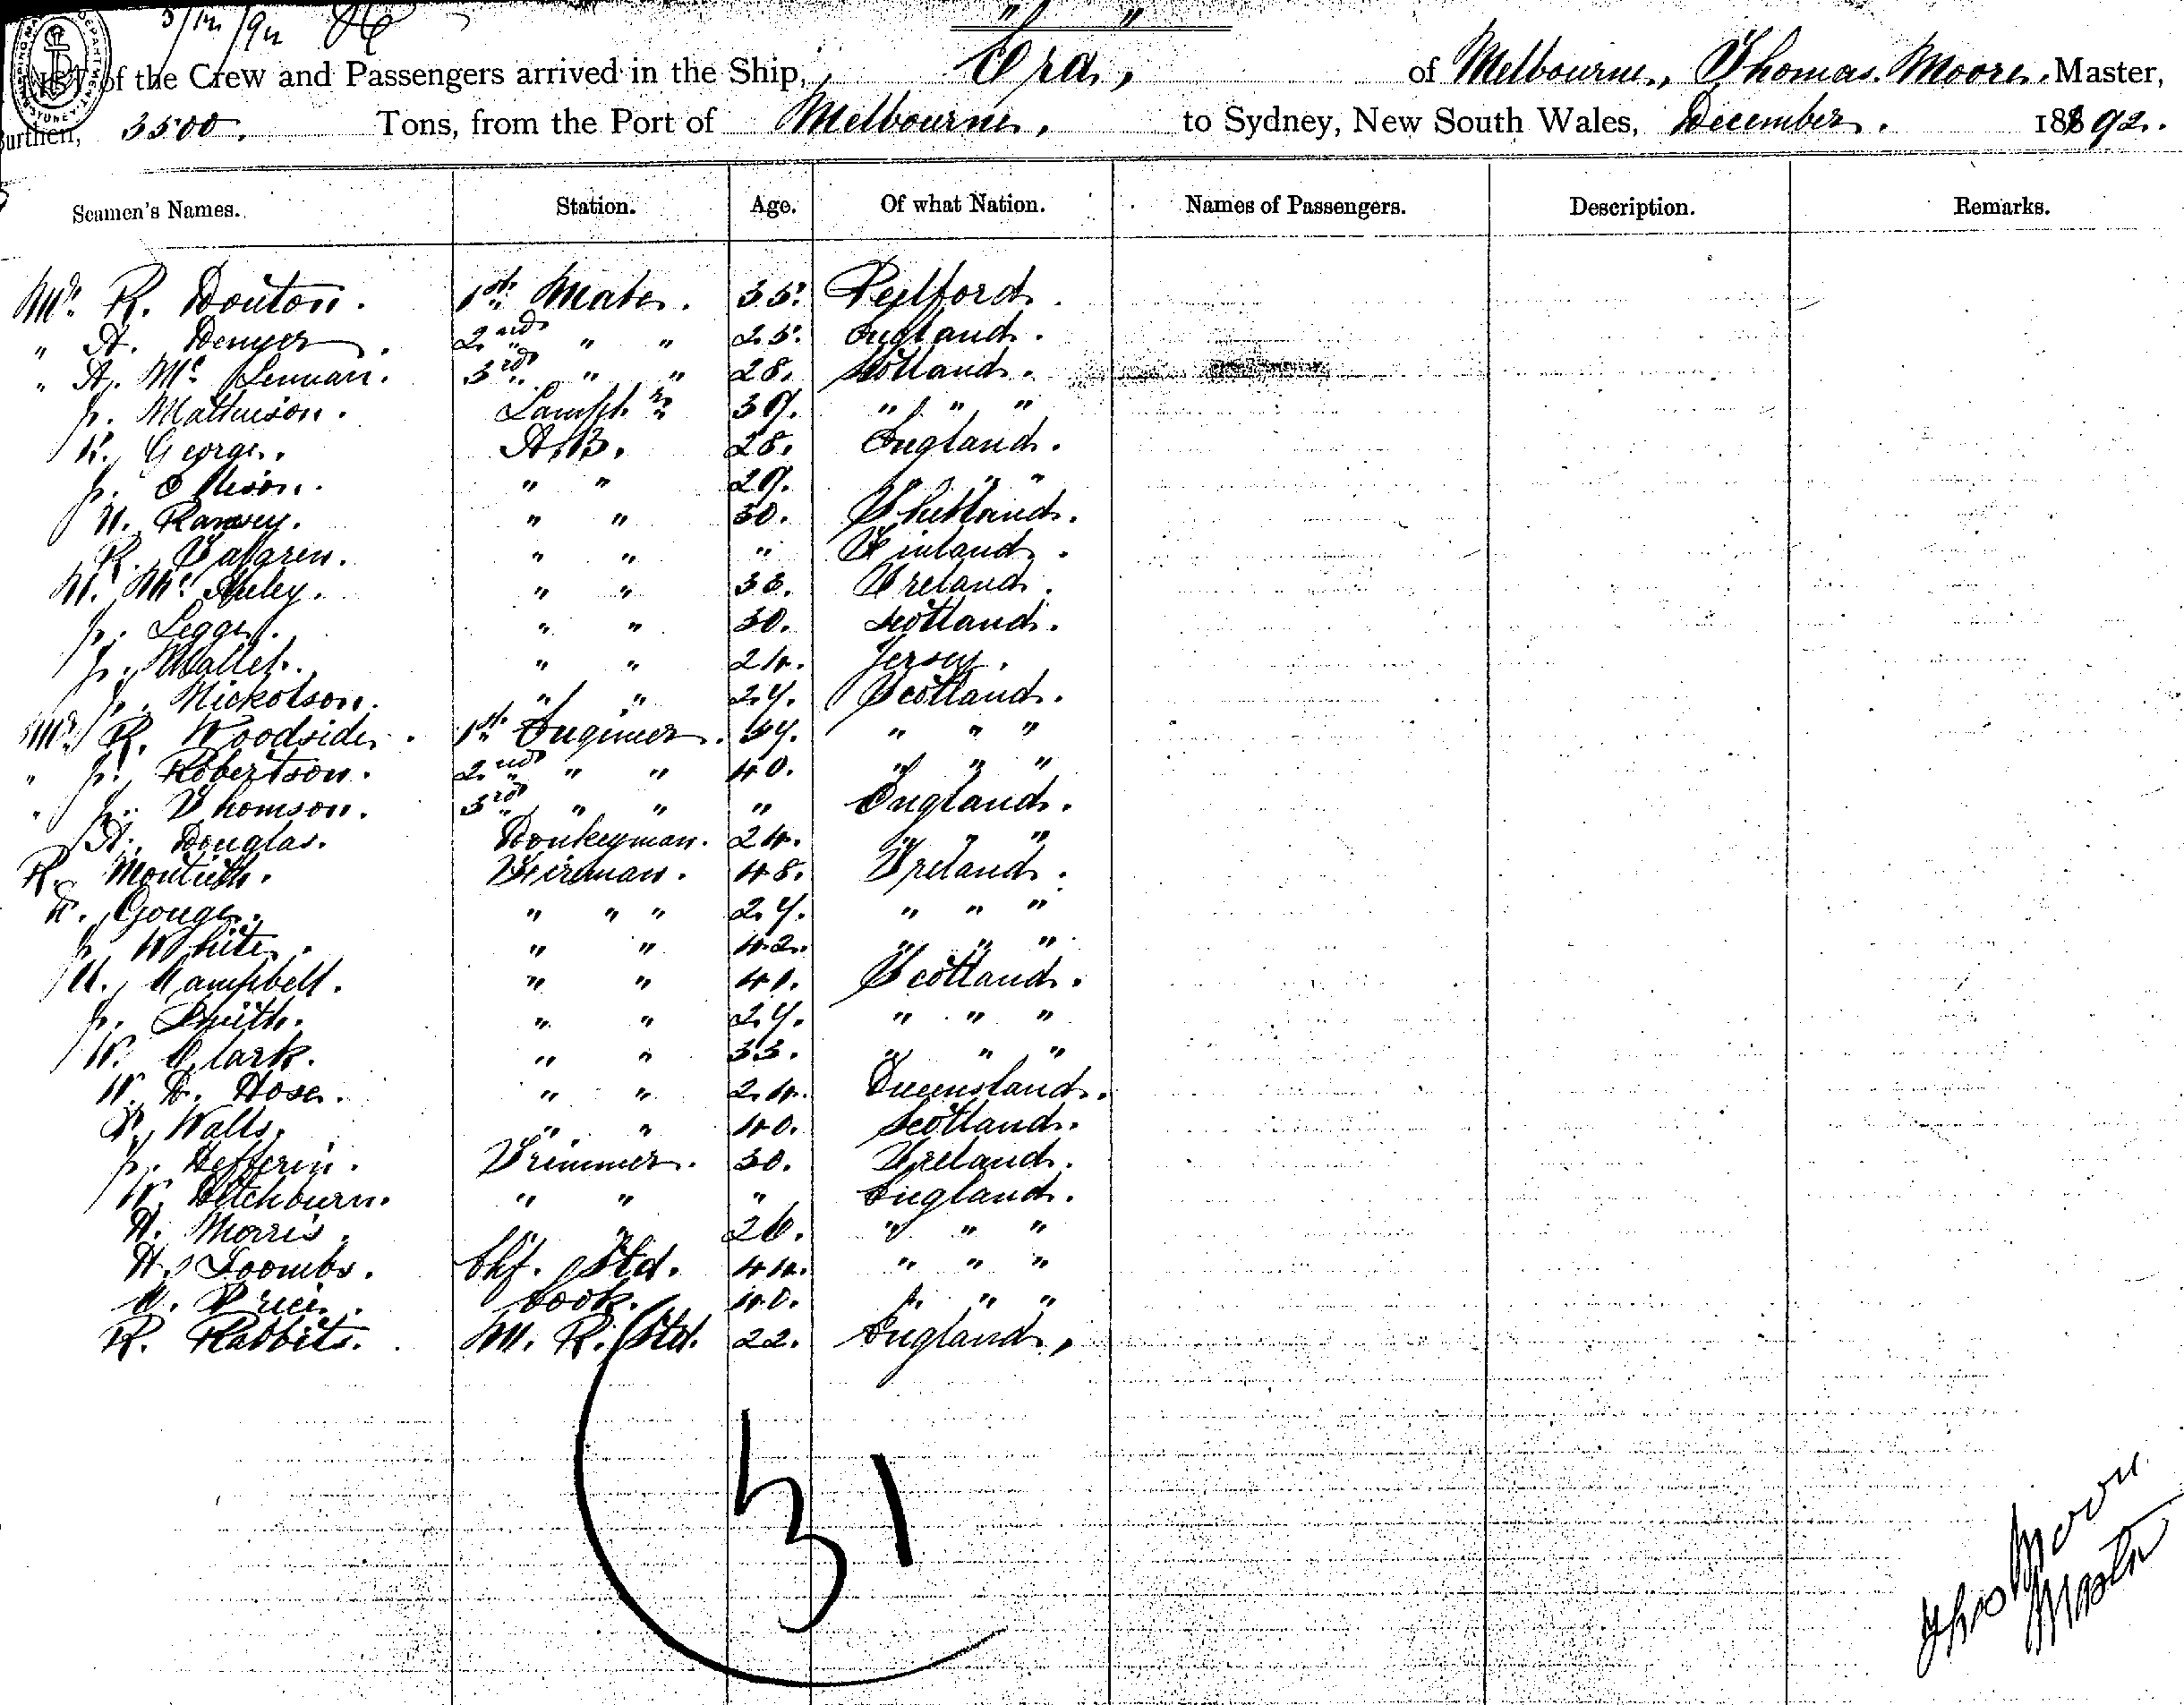 5/12/92
LIST of the Crew and Passengers arrived in the Ship, "Era", of Melbourne, Thomas Moore. Master,
Burthen, 3500. Tons, from the Port of Melbourne, to Sydney, New South Wales, December. 18892.
Seamen's Names. Station. Age. Of what Nation. Names of Passengers. Description. Remarks.
Mr. R. Douton. 1st Mate. 35. Bedford.
" A. Denyer. 2nd " " 25. England.
" A. Mc Lennan. 3rd " " 28. Scotland.
J. Mathieson. Lampt. 39. " " "
W. George. A.B. 28. England.
J. Ollison. " " 29. " " "
W. Ramsey. " " 30. Shetland.
R. Dalgren. " " " Finland.
W. Mc Auley. " " 33. Ireland.
J. Legget. " " 30. Scotland.
J. Mallet. " " 24. Jersey.
J. Nickolson. " " 27. Scotland.
Mr. R. Woodside. 1st Engineer. 37. " " "
" J. Robertson. 2nd " " 40. " " "
" J. Thomson. 3rd " " " England.
A. Douglas. Donkeyman. 24. " " "
R. Montieth. Fireman. 48. Ireland.
F. Gouge. " " " 27. " " "
J. White. " " 42. " " "
A. Campbell. " " 41. Scotland.
J. Smith. " " 27. " " "
W. Clark. " " 33. " " "
W. H. Hose. " " 24. Queensland.
P. Walls. " " 40. Scotland.
J. Hefferin. Trimmer. 30. Ireland.
W. Ditchburn. " " " England.
A. Morris. " " 26. " " "
H. Toombs. Chf. Std. 44. " " "
W. Price. Cook. 40. " " "
R. Rabbits. M. R. Std. 22. England.
31
Thos Moore
Master